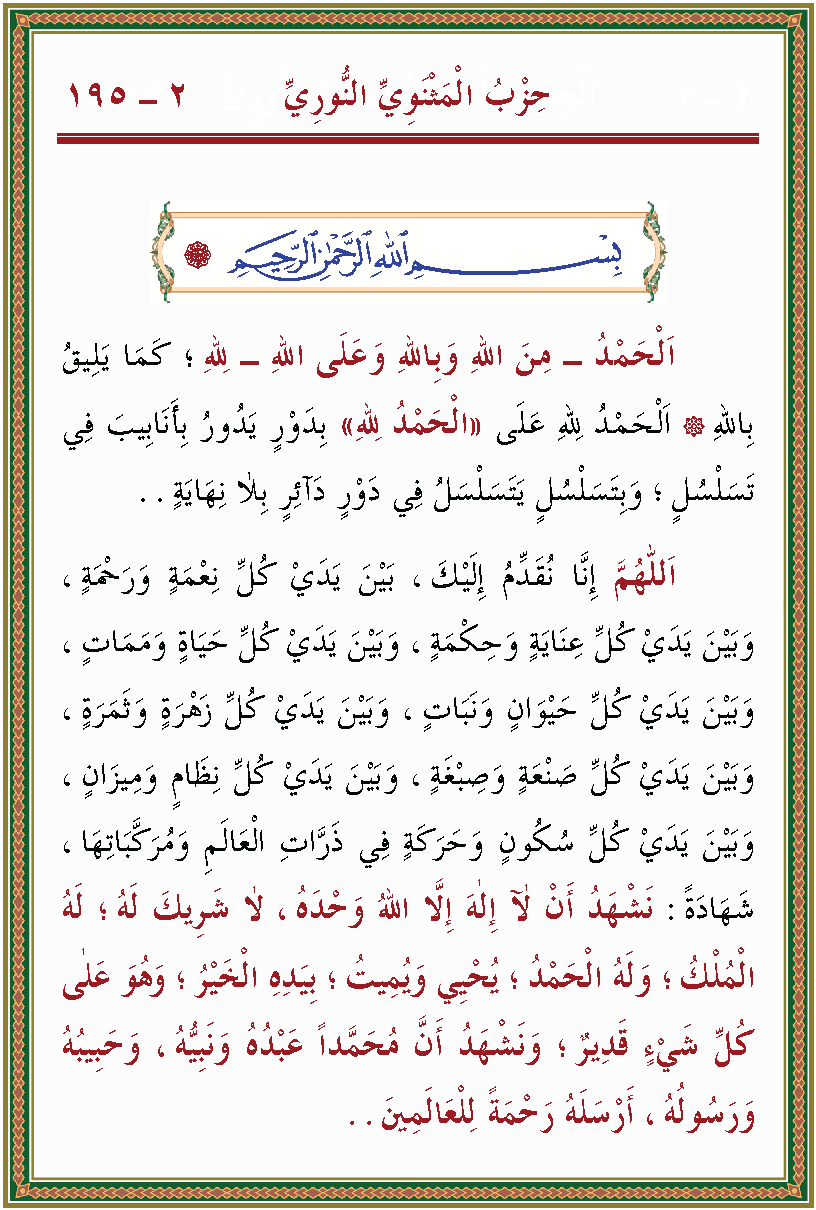 حِزْبُ الْمَثْنَوِيِّ النُّورِيِّ ٢ – ١٩٥
بِسْمِ اللهِ الرَّحْمٰنِ الرَّحِيمِ
اَلْحَمْدُ – مِنَ اللهِ وَبِاللهِ وَعَلَى اللهِ – لِلهِ ؛ كَمَا يَلِيقُ
بِاللهِ ۞ اَلْحَمْدُ لِلهِ عَلَى «الْحَمْدُ لِلهِ» بِدَوْرٍ يَدُورُ بِأَنَابِيبَ فِي
تَسَلْسُلٍ ؛ وَبِتَسَلْسُلٍ يَتَسَلْسَلُ فِي دَوْرٍ دَآئِرٍ بِلاٰ نِهَايَةٍ . .
اَللّٰهُمَّ إِنَّا نُقَدِّمُ إِلَيْكَ ، بَيْنَ يَدَيْ كُلِّ نِعْمَةٍ وَرَحْمَةٍ ،
وَبَيْنَ يَدَيْ كُلِّ عِنَايَةٍ وَحِكْمَةٍ ، وَبَيْنَ يَدَيْ كُلِّ حَيَاةٍ وَمَمَاتٍ ،
وَبَيْنَ يَدَيْ كُلِّ حَيْوَانٍ وَنَبَاتٍ ، وَبَيْنَ يَدَيْ كُلِّ زَهْرَةٍ وَثَمَرَةٍ ،
وَبَيْنَ يَدَيْ كُلِّ صَنْعَةٍ وَصِبْغَةٍ ، وَبَيْنَ يَدَيْ كُلِّ نِظَامٍ وَمِيزَانٍ ،
وَبَيْنَ يَدَيْ كُلِّ سُكُونٍ وَحَرَكَةٍ فِي ذَرَّاتِ الْعَالَمِ وَمُرَكَّبَاتِهَا ،
شَهَادَةً : نَشْهَدُ أَنْ لآٰ إِلٰهَ إِلَّا اللهُ وَحْدَهُ ، لاٰ شَرِيكَ لَهُ ؛ لَهُ
الْمُلْكُ ؛ وَلَهُ الْحَمْدُ ؛ يُحْيِي وَيُمِيتُ ؛ بِيَدِهِ الْخَيْرُ ؛ وَهُوَ عَلٰى
كُلِّ شَيْءٍ قَدِيرٌ ؛ وَنَشْهَدُ أَنَّ مُحَمَّداً عَبْدُهُ وَنَبِيُّهُ ، وَحَبِيبُهُ
وَرَسُولُهُ ، أَرْسَلَهُ رَحْمَةً لِلْعَالَمِينَ . .